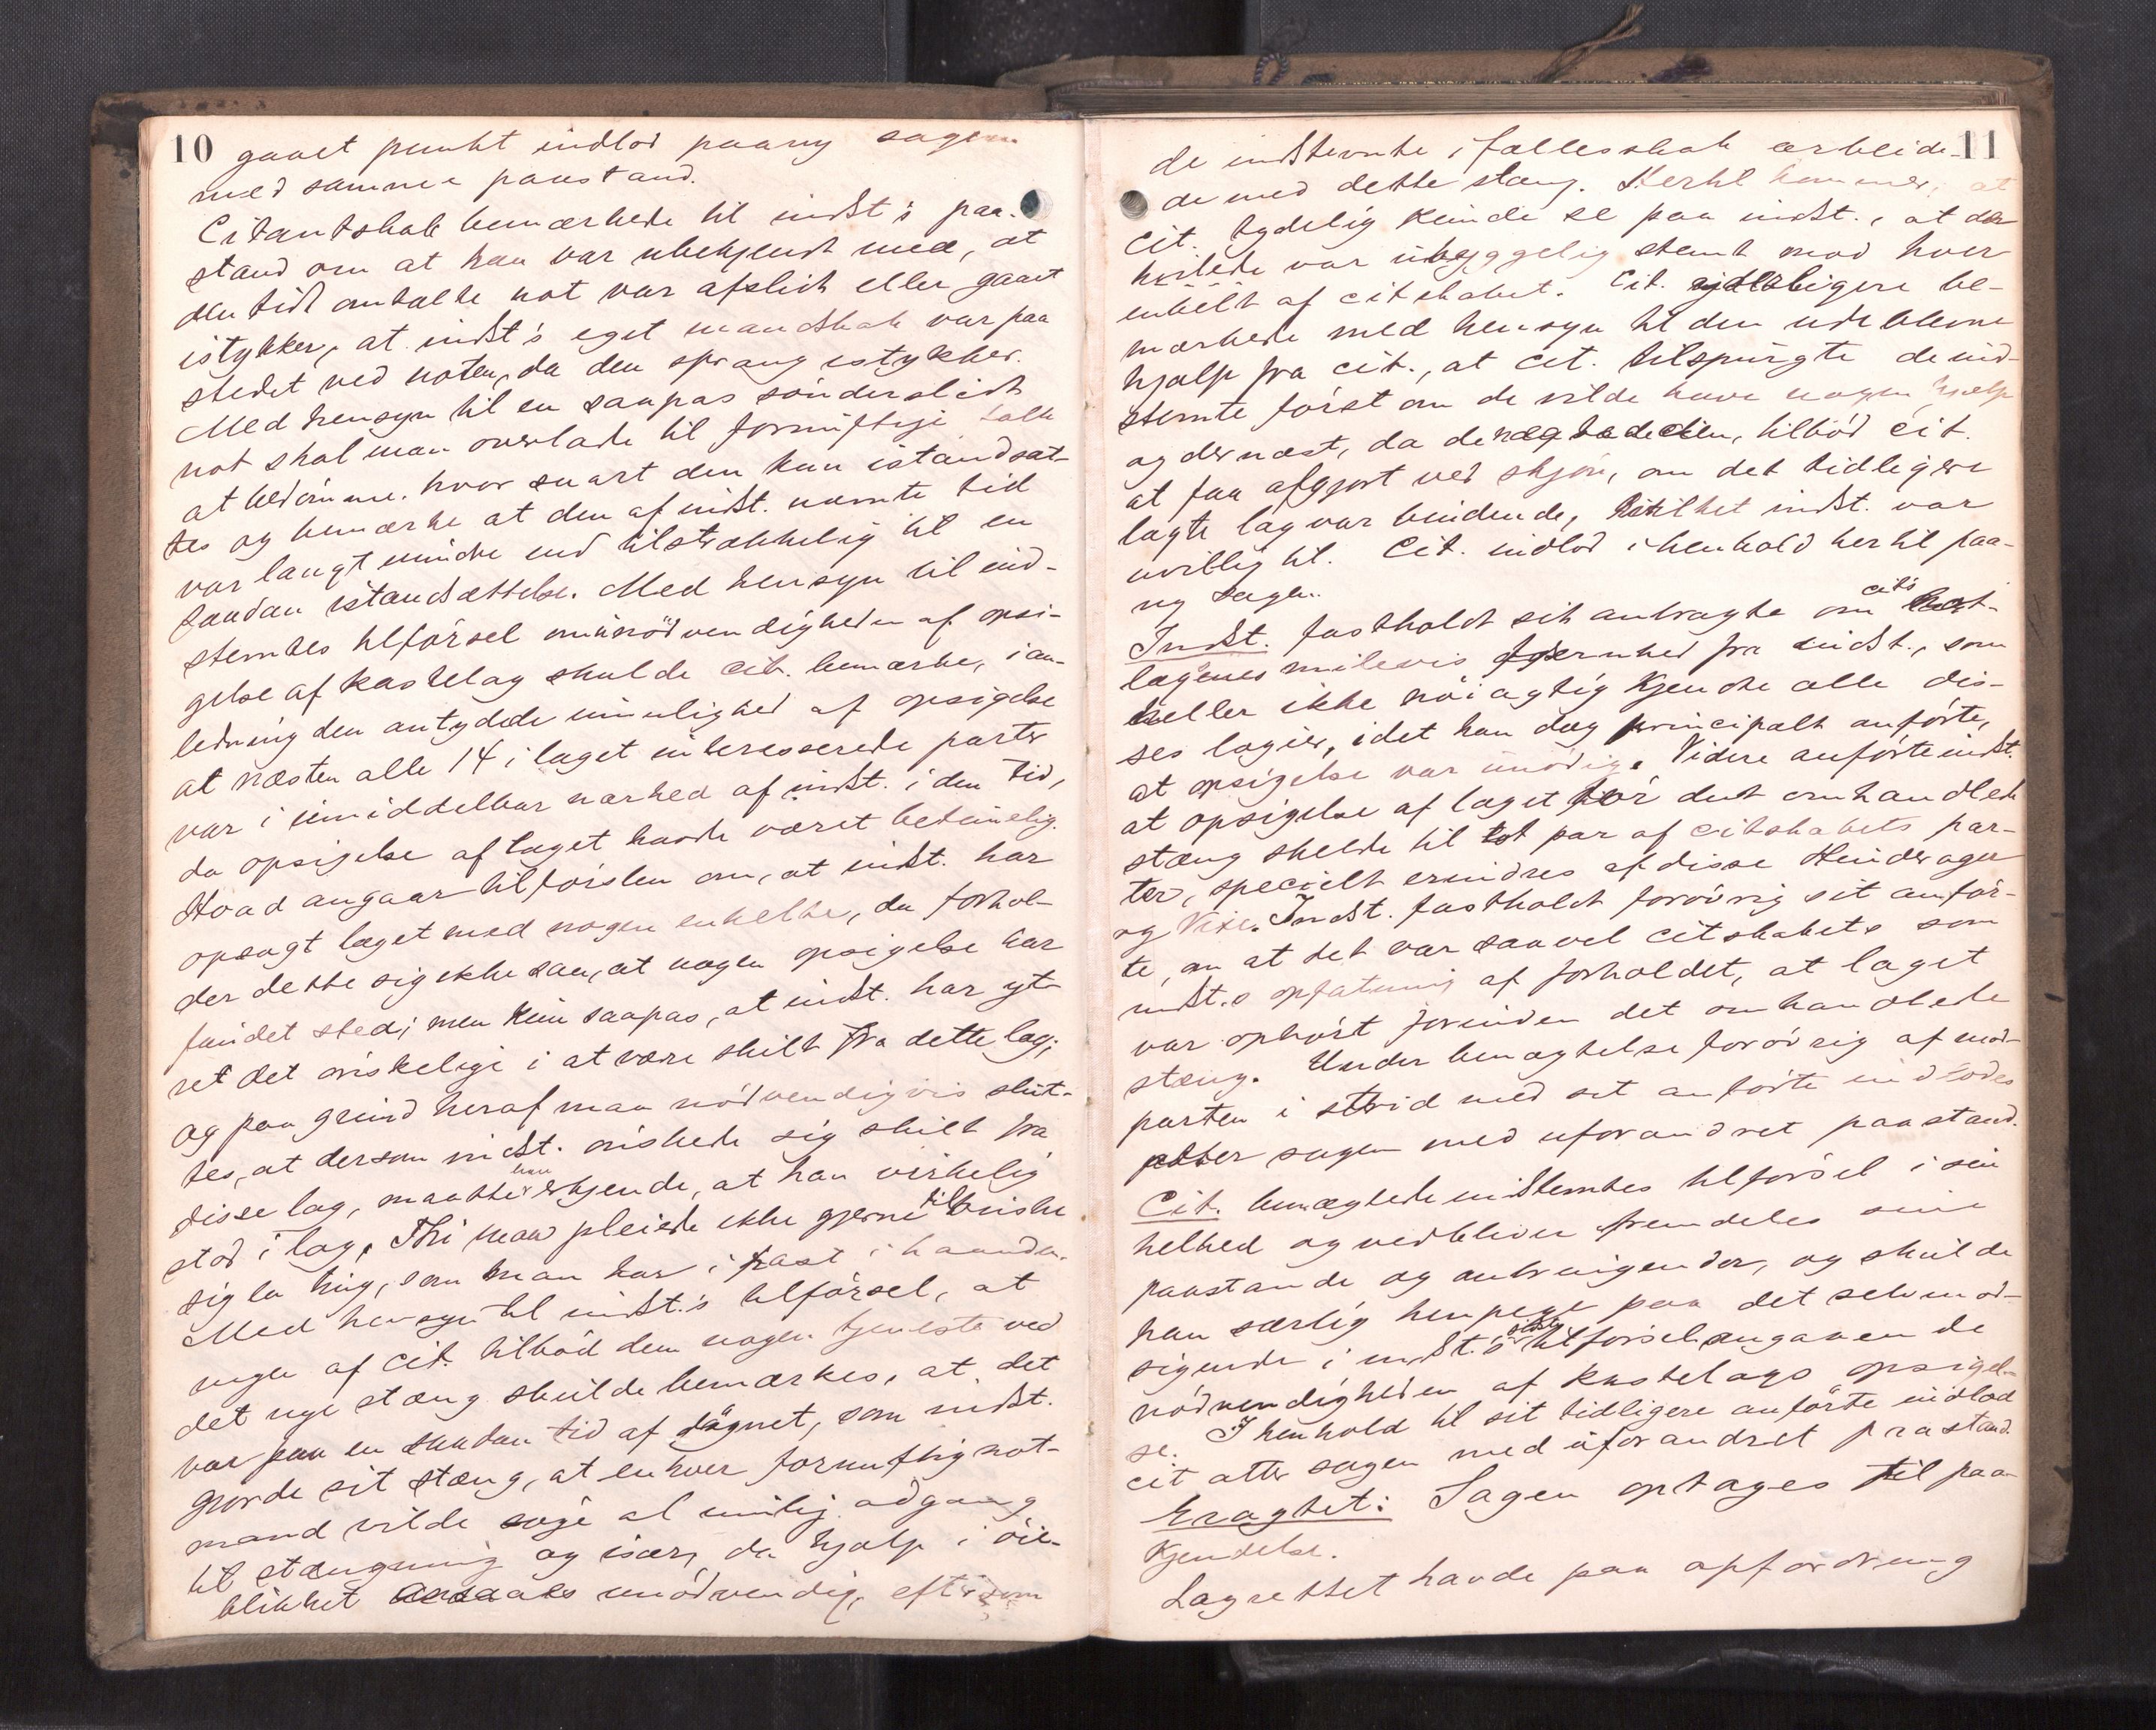 10
gaaet punkt indlod paany sagen
med samme paastand.
Citantskab bemærkede til indst's paa-
stand om at han var ubekjendt med, at
den tidt omtalte not var afslidt eller gaaet
istykker, at indst's eget mandskab var paa
stedet ved noten, da den sprang istykker.
Med hensyn til en saapas sönderslidt
not skal man overlade til fornüftige folk
at bedömme, hvor snart den kan istandsæt-
tes og bemærke at den af indst. nævnte tid
var langt mindre end tilstrækkelig til en
saadan istandsættelse. Med hensyn til ind-
stevntes tilförsel om ünödvendigheden af opsi-
gelse af kastelag skulde cit. bemærke, i an-
ledning den antydede ümulighed af opsigelse
at næsten alle 14 i laget interesserede parter
var i ümiddelbar nærhed af indst. i den tid,
da opsigelse af laget havde været betimelig.
Hvad angaar tilförslen om, at indst. har
opsagt laget med nogen enkelte, da forhol-
der dette sig ikke saa, at nogen opsigelse har
fundet sted; men kün saapas, at indst. har yt-
ret det önskelige i at være skilt fra dette lag;
og paa gründ heraf maa nödvendigvis slüt-
tes, at dersom indst. önskede sig skilt fra
disse lag, maatte han erkjende, at han virkelig
stod i lag. Thi man pleiede ikke gjerne tilönske
sig en ting, som man har i fast i haanden.
Med hensyn til indst.'s tilförsel, at
ingen af cit. tilböd dem nogen tjeneste ved
det nye stæng skulde bemærkes, at det
var paa en saadan tid af dögnet, som indst.
gjorde sit stæng, at enhver fornuftig not-
mand vilde söge al mülig adgang
til stængning og især, da hjælp i öie-
blikket ansaaes unödvendig, eftersom
11
de indstevnte i fællesskab arbeide-
de med dette stæng. Hertil kommer, at
cit. tydelig kunde se paa indst., at der
hvilede var uhyggelig stemt mod hver
enkelt af citskabet. Cit. yderligere be-
mærkede med hensyn til den udeblevne
hjælp fra cit., at cit. tilspürgte de ind-
stevnte först om de vilde have nogen hjælp
og dernæst, da de nægtede den, tilböd cit.
at faa afgjort ved skjön, om det tidligere
lagte lag var bindende, hvilket indst. var
uvillig til. Cit. indlod i henhold hertil paa-
ny sagen.
Indst. fastholdt sit antragte om cit's kast-
lagenes milevis fjernhed fra indst., som
heller ikke nöiagtig kjendte alle dis-
ses lagier, idet han dog principalt anförte,
at opsigelse var ünödig. Videre anförte indst.
at opsigelse af laget för det omhandlede
stæng skede til et par af citskabets par-
ter, specielt erindres af disse Hinderager
og Vixe. Indst. fastholdt forövrig sit anför-
te, om at det var saavel citskabets som
indst.s opfatning af forholdet, at laget
var ophört forinden det omhandlede
stæng. Under benægtelse forövrig af mod-
parten i strid med det anförte indlodes
atter sagen med uforandret paastand.
Cit. benægtede indstevntes tilförsel i sin
helhed og vedbliver fremdeles sine
paastande og anbringender, og skülde
han særlig henpege paa det selvmod-
sigende i indst.'s sidste tilförsel angaaende
nödvendigheden af kastelags opsigel-
se. I henhold til sit tidligere anförte indlod
cit atter sagen med üforandret paastand.
Eragtet: Sagen optages til paa-
kjendelse.
Lagrettet havde paa opfordring